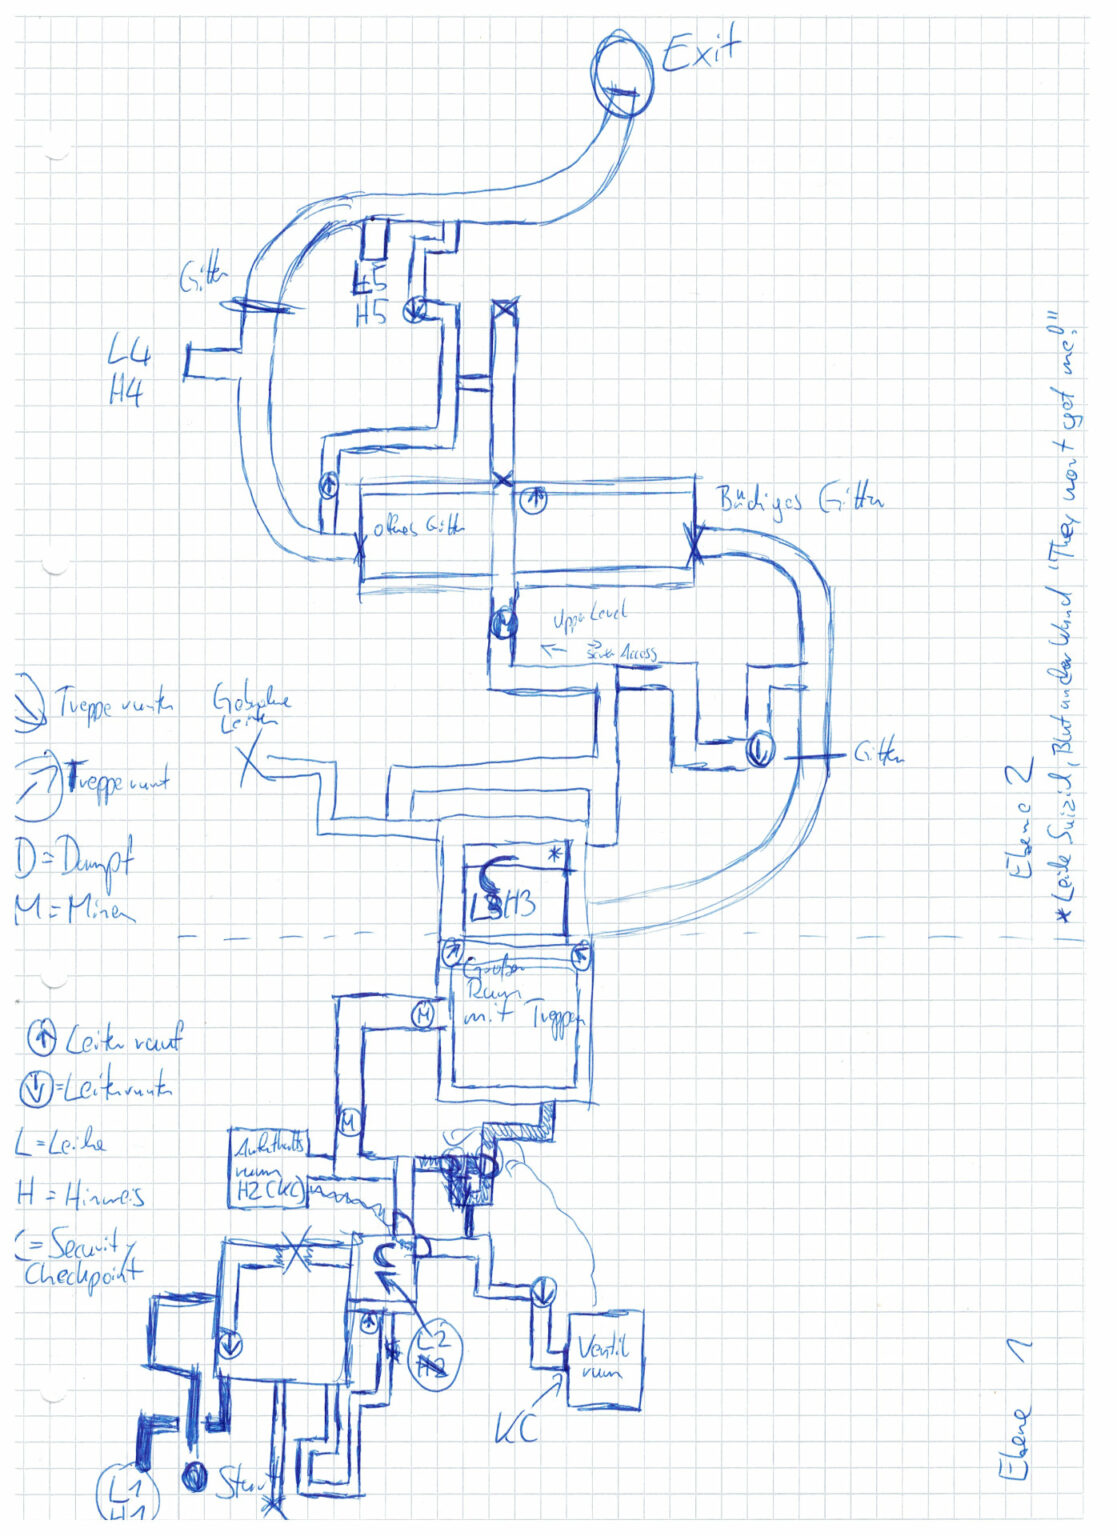 Exit
Gitter
L5
H5
L4
H4
offenes Gitter
Upper Level
Sewer Access
Gitter
Treppe runter
Treppe rauf
D = Dampf
M = Minen
Leiter
*
L3H3
M
Großer
Raum
mit Treppen
M
M
Leiter rauf
=Leiter runter
L = Leiche
H = Hinweis
C = Security
Checkpoint
Aufenthalts
raum
H2(KC)
C
L2
H2
Ventil
raum
KC
L1
H1
Start
Ebene 2
* Leiche Suizid, Blut an der Wand "They won't get me!"
Ebene 1